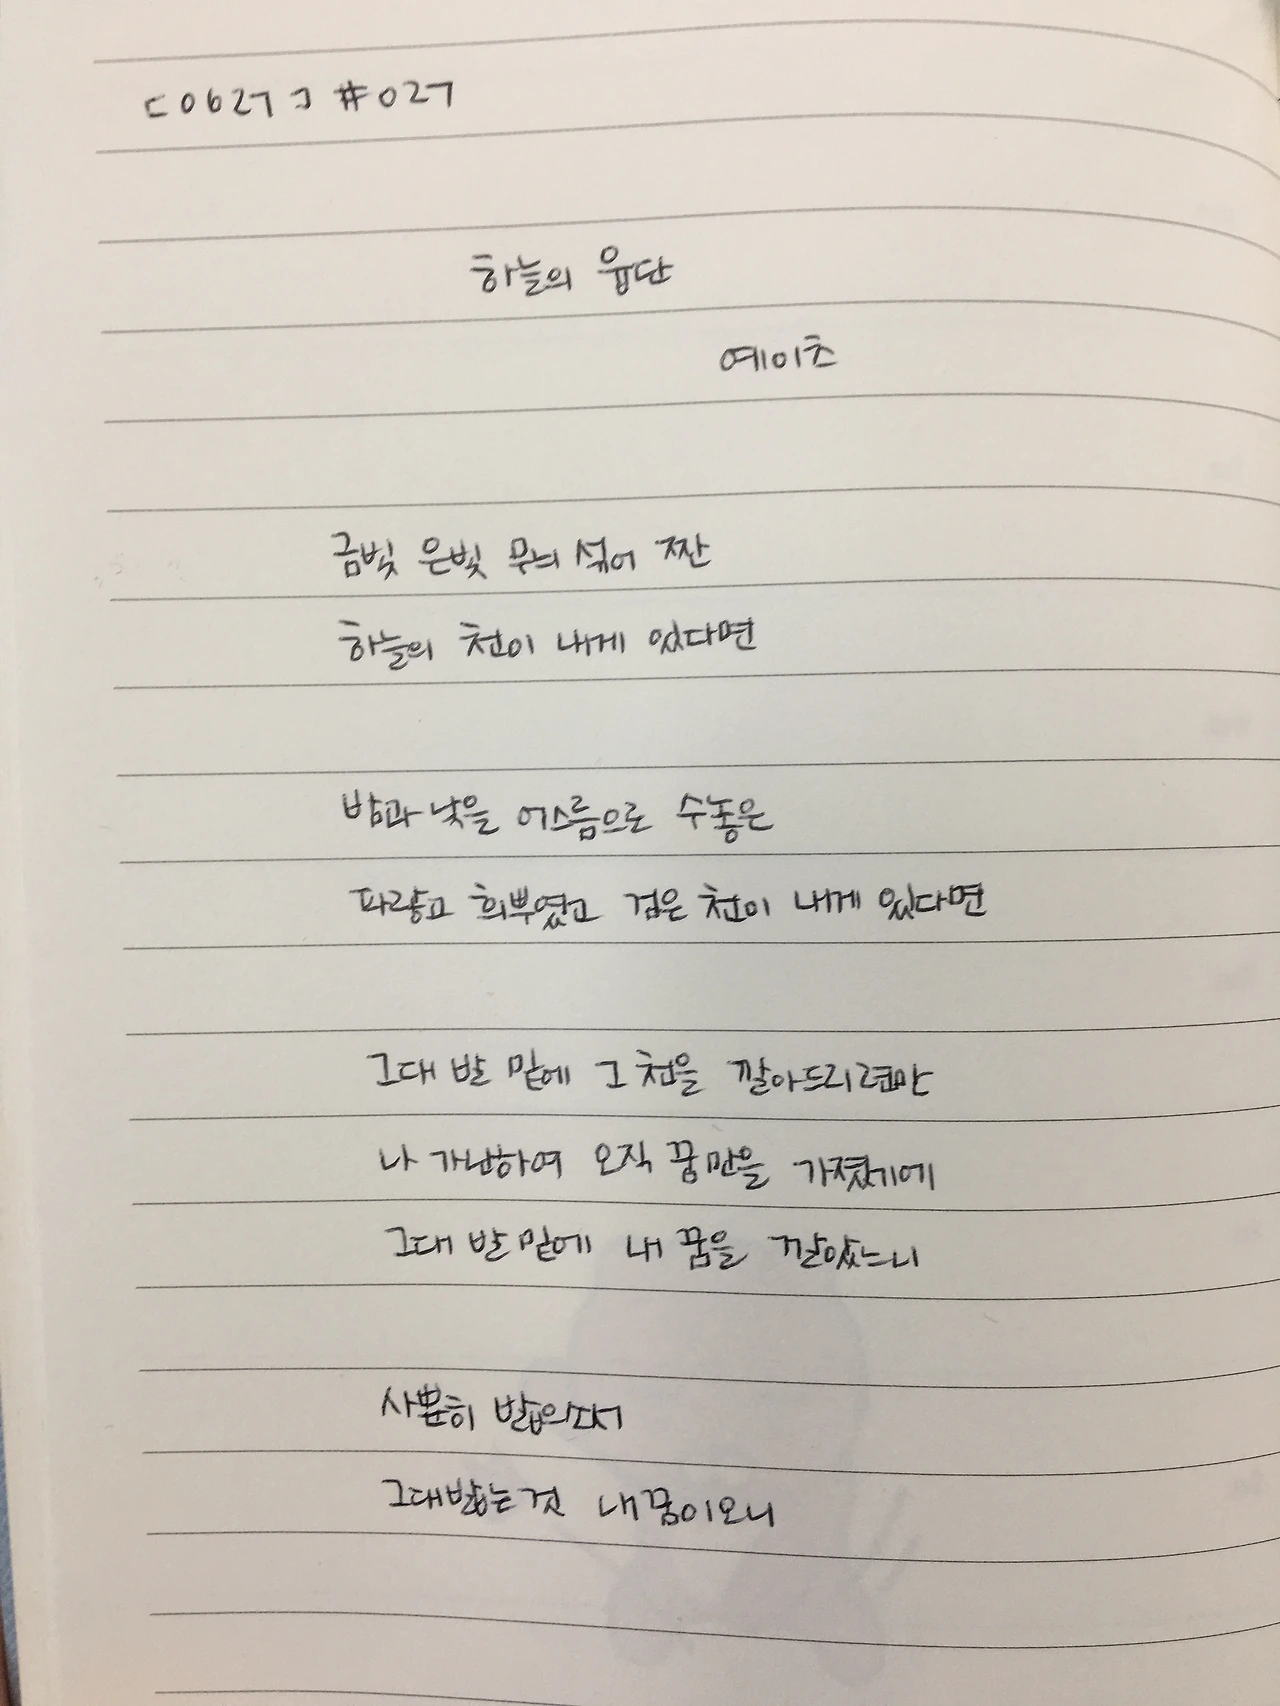 [0627] #027
하늘의 융단
예이츠
금빛 은빛 무늬 섞어 짠
하늘의 천이 내게 있다면
밤과 낮을 어스름으로 수놓은
파랗고 희뿌옇고 검은 천이 내게 있다면
그대 발 밑에 그 천을 깔아드리련만
나 가난하여 오직 꿈만을 가졌기에
그대 발 밑에 내 꿈을 깔았느니
사뿐히 밟으소서
그대 밟는 것 내 꿈이오니